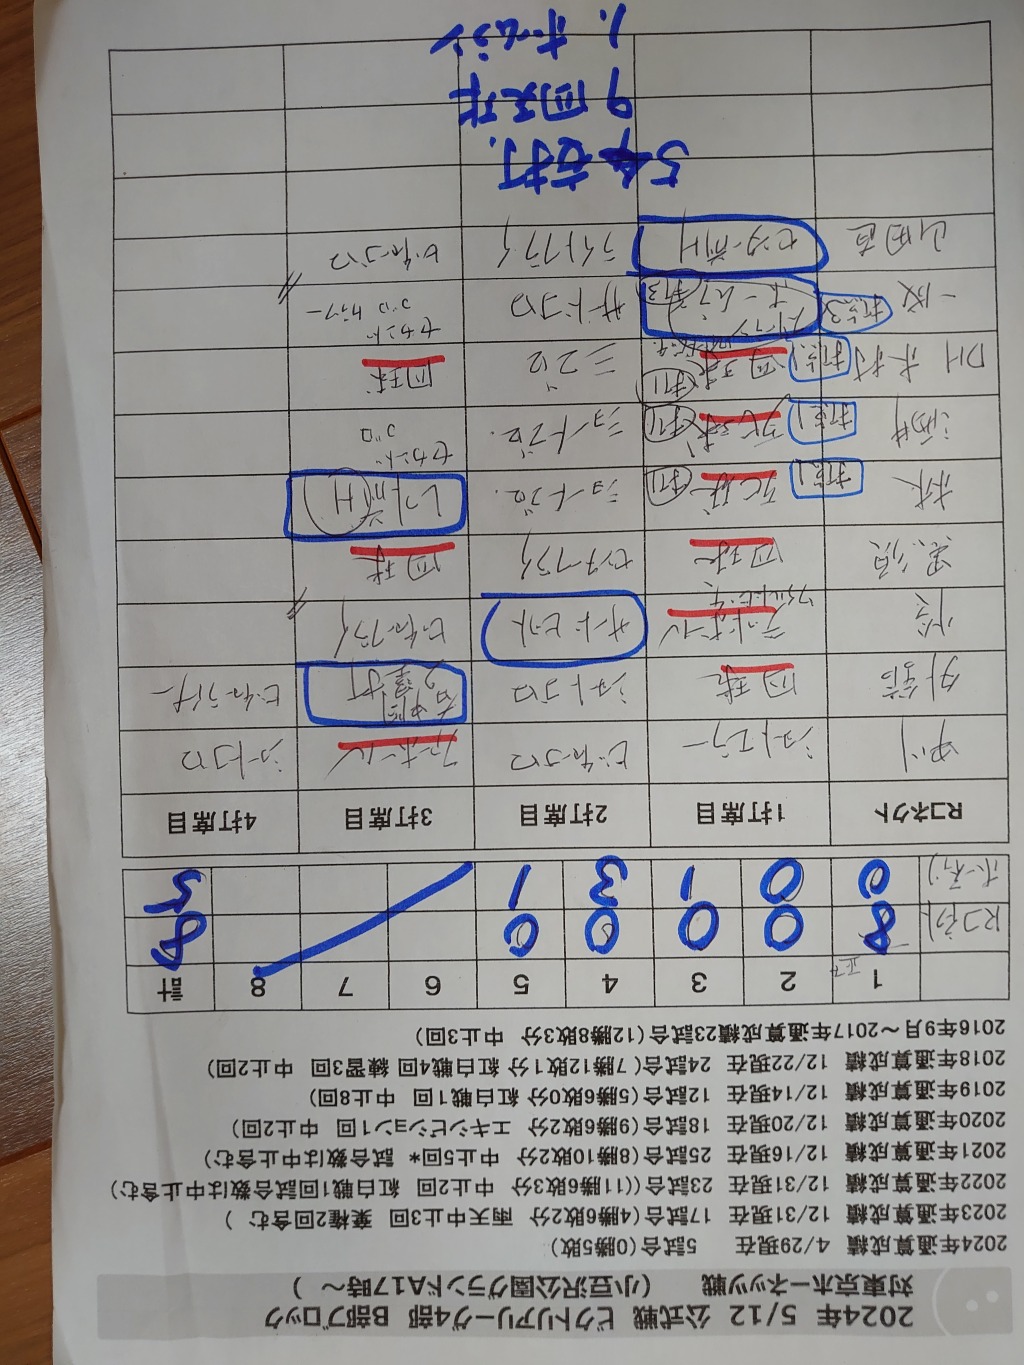 2024年 5/12 公式戦 ビクトリアリーグ4部 B部ブロック
対東京ホーネッツ戦 (小豆沢公園グランドA17時～ )
2024年通算成績 4/29現在 5試合(0勝5敗)
2023年通算成績 12/31現在 17試合(4勝6敗2分 雨天中止3回 棄権2回含む )
2022年通算成績 12/31現在 23試合((11勝6敗3分 中止2回 紅白戦1回試合数は中止含む)
2021年通算成績 12/16現在 25試合(8勝10敗2分 中止5回* 試合数は中止含む)
2020年通算成績 12/20現在 18試合(9勝6敗2分 エキシビション1回 中止2回)
2019年通算成績 12/14現在 12試合(5勝6敗0分 紅白戦1回 中止8回)
2018年通算成績 12/22現在 24試合(7勝12敗1分 紅白戦4回 練習3回 中止2回)
2016年9月～2017年通算成績23試合(12勝8敗3分 中止3回)
1 2 3 4 5 6 7 8 計
Rコネクト 8 0 0 0 0 8
ホーネッツ 0 0 1 3 1 5
Rコネクト 1打席目 2打席目 3打席目 4打席目
中川 ショートエラー ピッチャーゴロ フォアボール ショートゴロ
四球 ショートゴロ 右中間2塁打
デッドボール ワイルドピッチ サードヒット ピッチャーフライ
四球 センターフライ 四球
林 死球 打1 打点1 ショートゴロ. レフト前H
酒井 死球 打1 打点1 ショートゴロ. セカンドゴロ
DH 木村 打点1 四球 打1 三ゴロ 四球
一成 打点3 スリーランホームラン 打3 サードゴロ セカンドゴロ
山田直 センター前H ライトフライ ピッチャーゴロ
5安打.
9四死球
1. ホームラン